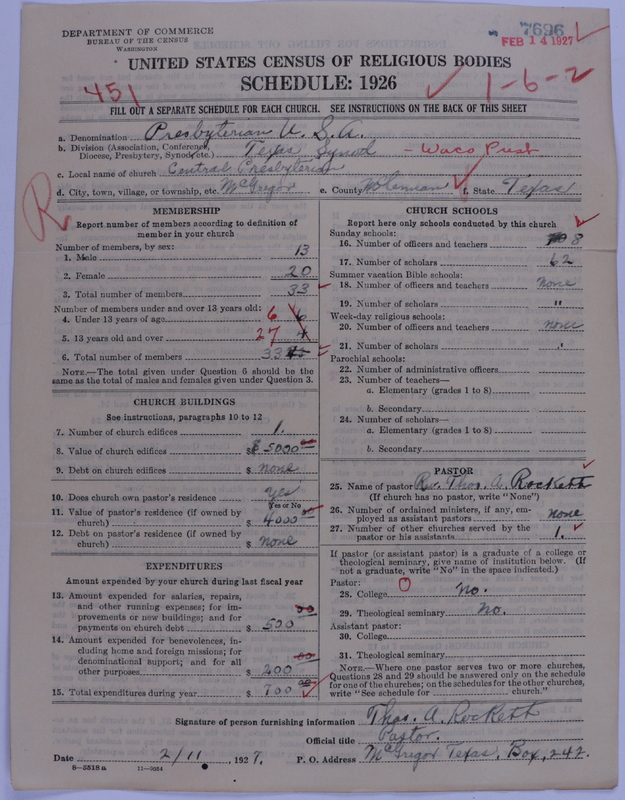 DEPARTMENT OF COMMERCE
BUREAU OF THE CENSUS
WASHINGTON
7696
FEB 14 1927
UNITED STATES CENSUS OF RELIGIOUS BODIES
SCHEDULE: 1926
451
1-6-2
FILL OUT A SEPARATE SCHEDULE FOR EACH CHURCH. SEE INSTRUCTIONS ON THE BACK OF THIS SHEET
a. Denomination Presbyterian U. S. A.
b. Division (Association, Conference, Diocese, Presbytery, Synod, etc.) Texas Synod - Waco Presb
c. Local name of church Central Presbyterian
d. City, town, village, or township, etc. McGregor e. County McLennan f. State Texas
R
MEMBERSHIP
Report number of members according to definition of
member in your church
Number of members, by sex:
1. Male 13
2. Female 20
3. Total number of members 33
Number of members under and over 13 years old:
4. Under 13 years of age 6
5. 13 years old and over 27
6. Total number of members 33
NOTE.—The total given under Question 6 should be
the same as the total of males and females given under Question 3.
CHURCH BUILDINGS
See instructions, paragraphs 10 to 12
7. Number of church edifices 1.
8. Value of church edifices $ 5000
9. Debt on church edifices $ none
10. Does church own pastor's residence yes
Yes or No
11. Value of pastor's residence (if owned by
church) $ 4000
12. Debt on pastor's residence (if owned by
church) $ none
EXPENDITURES
Amount expended by your church during last fiscal year
13. Amount expended for salaries, repairs,
and other running expenses; for im-
provements or new buildings; and for
payments on church debt $ 500 00
14. Amount expended for benevolences, in-
cluding home and foreign missions; for
denominational support; and for all
other purposes $ 200 00
15. Total expenditures during year $ 700 00
CHURCH SCHOOLS
Report here only schools conducted by this church
Sunday schools:
16. Number of officers and teachers 8
17. Number of scholars 62
Summer vacation Bible schools:
18. Number of officers and teachers none
19. Number of scholars "
Week-day religious schools:
20. Number of officers and teachers none
21. Number of scholars "
Parochial schools:
22. Number of administrative officers
23. Number of teachers—
a. Elementary (grades 1 to 8)
b. Secondary
24. Number of scholars—
a. Elementary (grades 1 to 8)
b. Secondary
PASTOR
25. Name of pastor Rev. Thos. A. Rockett
(If church has no pastor, write "None")
26. Number of ordained ministers, if any, em-
ployed as assistant pastors none
27. Number of other churches served by the
pastor or his assistants 1.
If pastor (or assistant pastor) is a graduate of a college or
theological seminary, give name of institution below. (If
not a graduate, write "No" in the space indicated.)
Pastor:
28. College No.
29. Theological seminary No.
Assistant pastor:
30. College
31. Theological seminary
NOTE.—Where one pastor serves two or more churches,
Questions 28 and 29 should be answered only on the schedule
for one of the churches; on the schedules for the other churches,
write "See schedule for church."
Signature of person furnishing information Thos. A. Rockett
Official title Pastor.
Date 2/11, 1927. P. O. Address McGregor Texas, Box, 242.
8-5518 a 11-9664